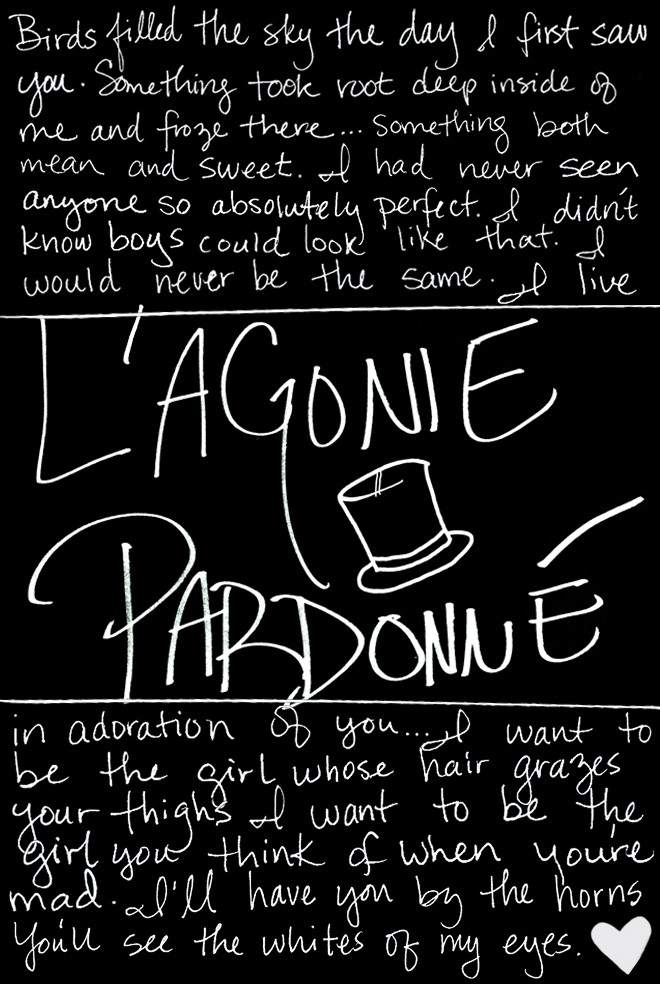 Birds filled the sky the day I first saw
you. Something took root deep inside of
me and froze there... something both
mean and sweet. I had never seen
anyone so absolutely perfect. I didn't
know boys could look like that. I
would never be the same. I live
L'AGONIE
PARDONNÉ
in adoration of you... I want to
be the girl whose hair grazes
your thighs I want to be the
girl you think of when you're
mad. I'll have you by the horns
You'll see the whites of my eyes.